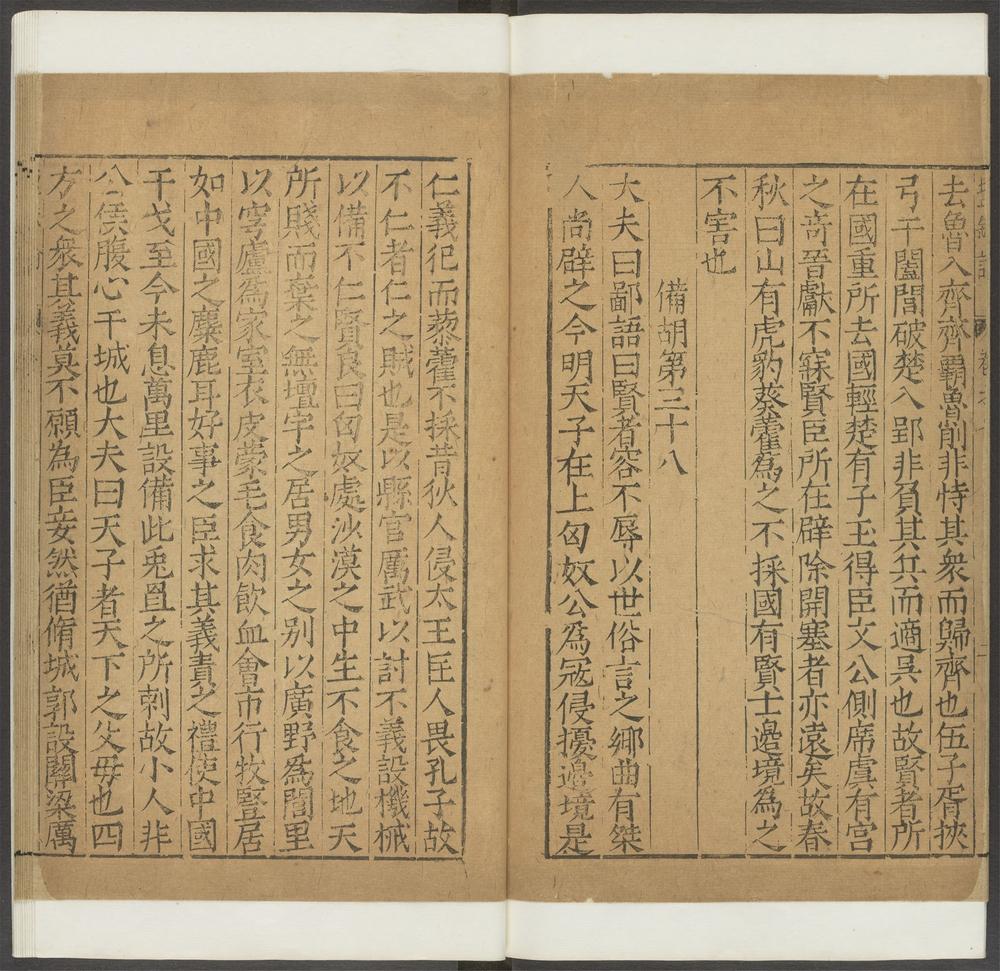 去魯入齊齊霸魯削非恃其衆而歸齊也伍子胥挾
弓干闔閭破楚入郢非負其兵而適吳也故賢者所
在國重所去國輕楚有子玉得臣文公側席虞有宮
之竒晉獻不寐賢臣所在辟除開塞者亦遠矣故春
秋曰山有虎豹葵藿爲之不採國有賢士邉境為之
不害也
備胡第三十八
大夫曰鄙語曰賢者容不辱以世俗言之鄉曲有桀
人尚辟之今明天子在上匈奴公爲冦侵擾邉境是
仁義犯而藜藿不採昔狄人侵太王匡人畏孔子故
不仁者仁之賊也是以縣官厲武以討不義設機械
以備不仁賢良曰匈奴處沙漠之中生不食之地天
所賤而棄之無壇宇之居男女之别以廣野爲閭里
以穹廬爲家室衣皮蒙毛食肉飲血會市行牧豎居
如中國之麋鹿耳好事之臣求其義責之禮使中國
干戈至今未息萬里設備此兎罝之所刺故小人非
公侯腹心干城也大夫曰天子者天下之父母也四
方之衆其義莫不願為臣妾然猶脩城郭設關梁厲